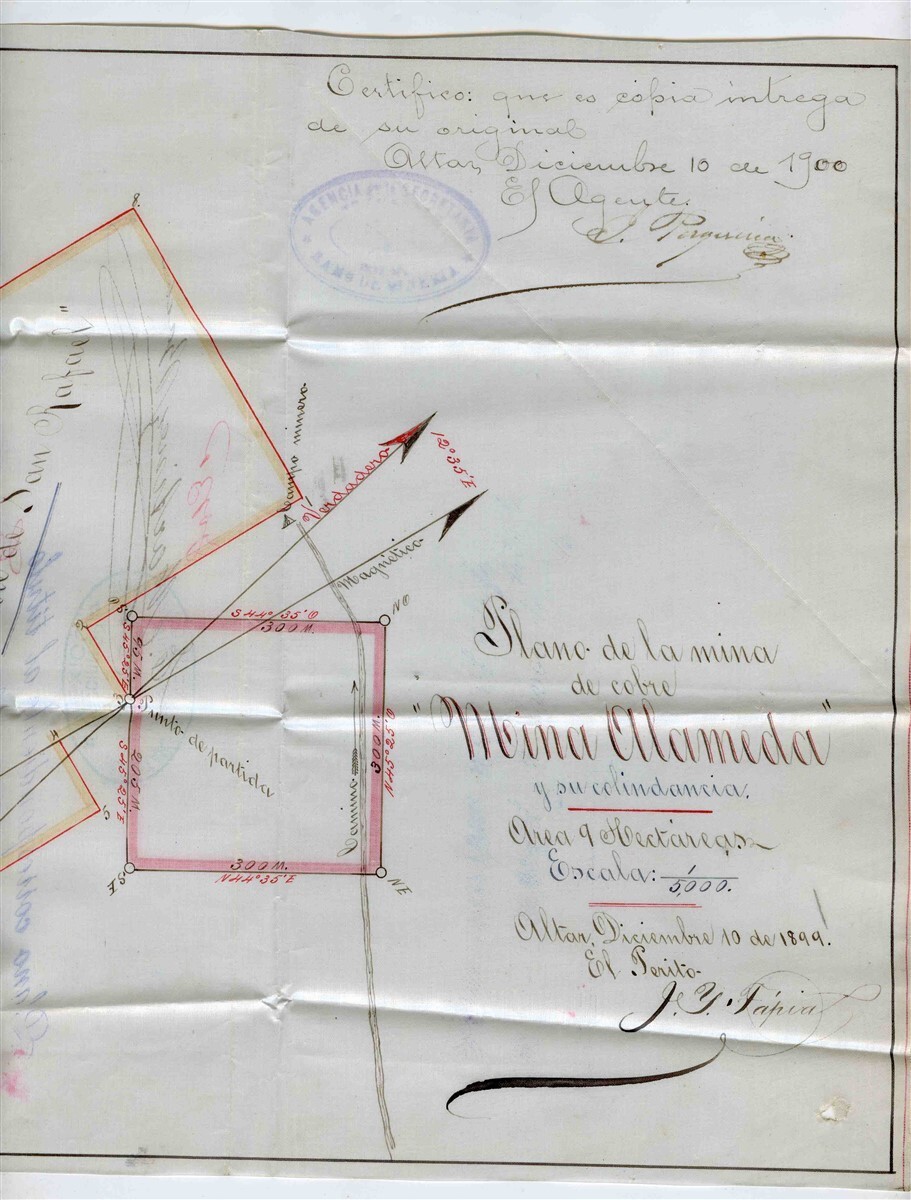 Certifico: que es cópia intrega
de su original
Altar, Diciembre 10 de 1900
El Agente.
AGENCIA DE LA SECRETARIA
RAMO DE MINERIA
8.
San Rafael"
Campo minero
Verdadera
12°35'E
Magnético
S 44° 35' O
300 M.
NO
S 45° 25' E
95 M.
Punto de partida
S 45° 25' E
205 M.
Camino
300 M.
300 M.
N 44° 35' E
SE
NE
Plano de la mina
de cobre
"Mina Alameda"
y su colindancia.
Area 9 Hectáreas
Escala: 1/5,000.
Altar, Diciembre 10 de 1899.
El Perito
J. Y. Tápia